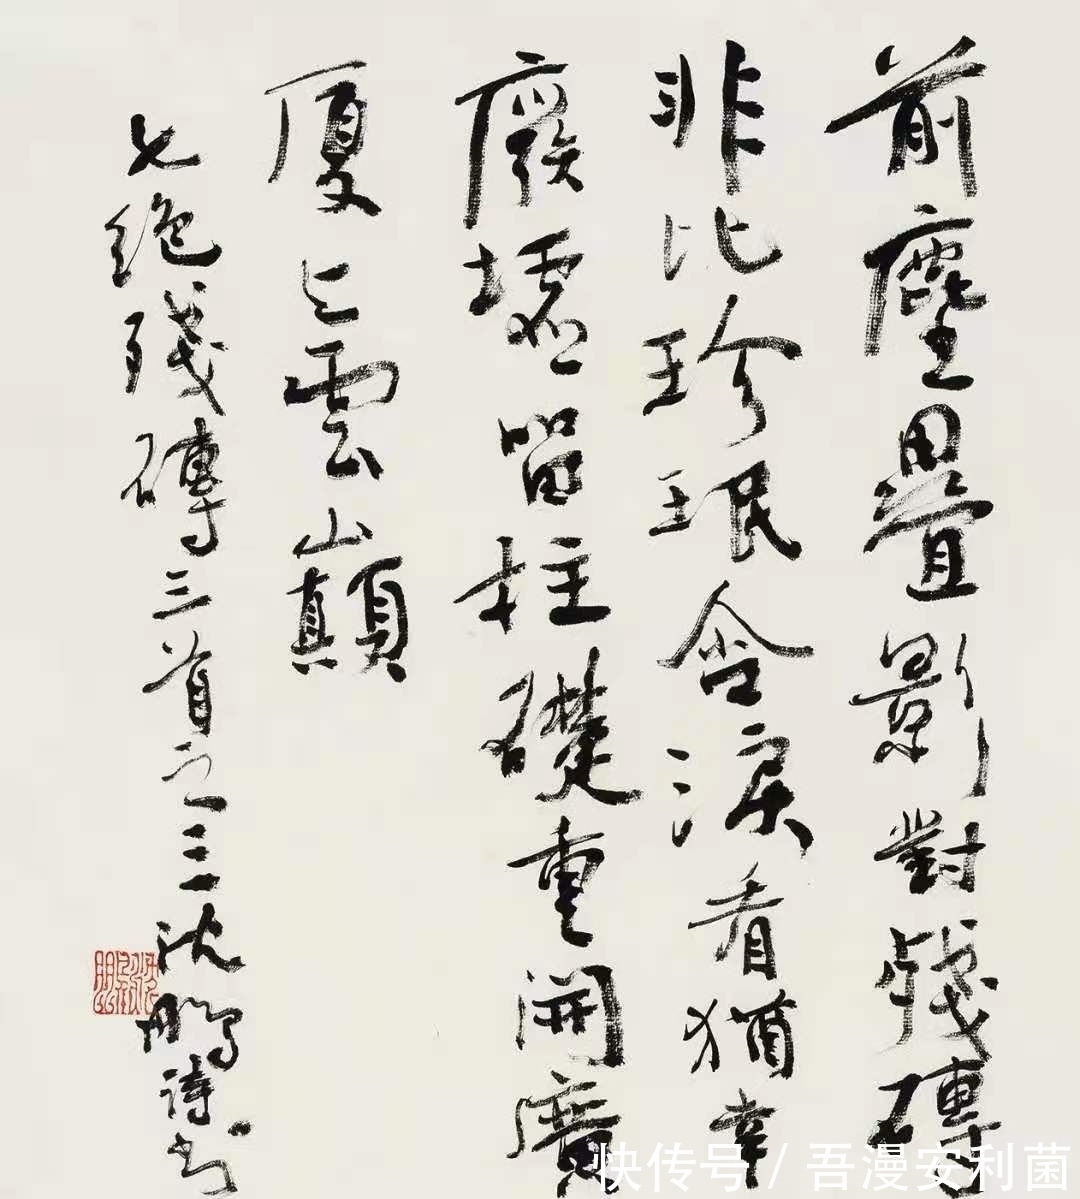 前塵疊影對殘磚
非比珍珉含淚看猶幸
廢墟留柱礎重開廣
廈上雲巔
七絕殘磚三首之三沈鵬詩书
沈鵬
快传号/吾漫安利菌